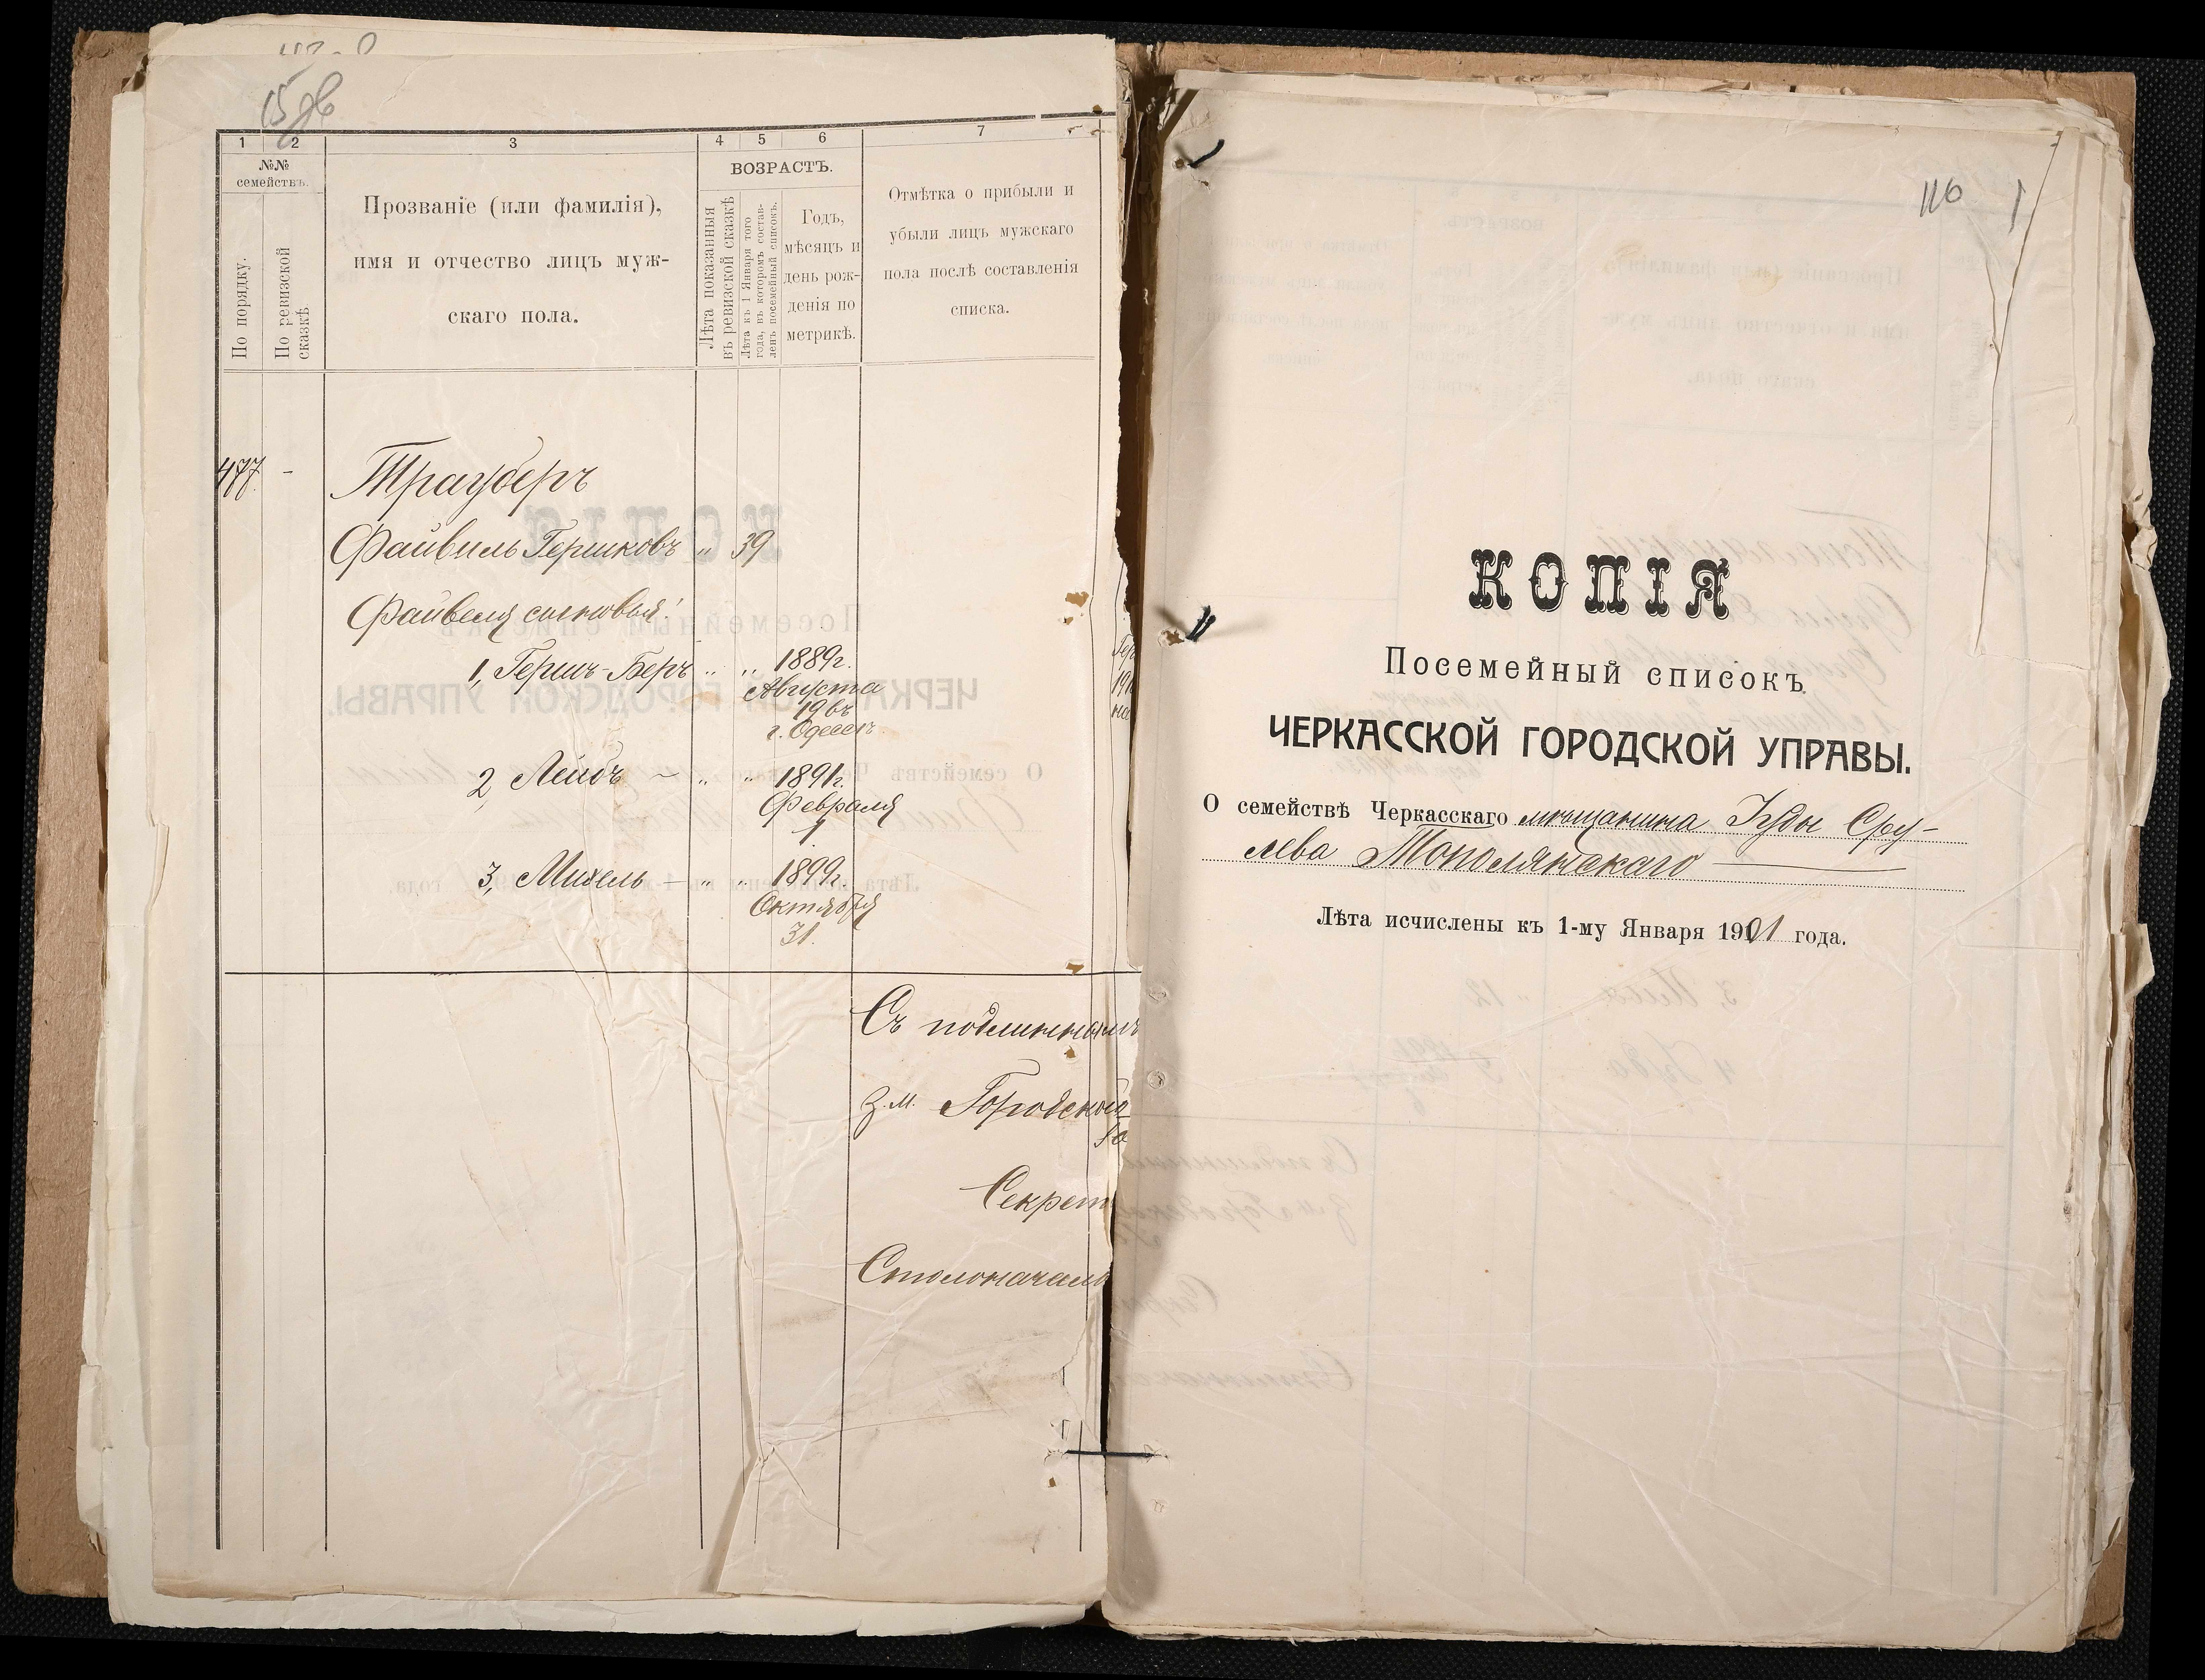 15 дв
1 2 3 4 5 6 7
№№ семействъ.
По порядку.
По ревизской сказкѣ
Прозваніе (или фамилія),
имя и отчество лицъ муж-
скаго пола.
ВОЗРАСТЪ.
Лѣта показанныя
въ ревизской сказкѣ
Лѣта къ 1 Января того
года, въ которомъ состав-
ленъ посемейный списокъ.
Годъ,
мѣсяцъ и
день рож-
денія по
метрикѣ.
Отмѣтка о прибыли и
убыли лицъ мужскаго
пола послѣ составленія
списка.
477. - Трауберъ
Файвиль Гершковъ " 39
Файвеля сыновья:
1, Гершъ-Беръ " " 1889г.
Августа
19 въ
г. Одессѣ
2, Лейбъ ~ " " 1891г.
Февраля
1.
3, Михель - " " 1899г.
Октября
31.
Съ подлиннымъ
З.М. Городской
Секрет
Столоначаль
116
КОПІЯ
Посемейный списокъ
ЧЕРКАССКОЙ ГОРОДСКОЙ УПРАВЫ.
О семействѣ Черкасскаго мѣщанина Іуды Сру-
лева Тополянскаго
Лѣта исчислены къ 1-му Января 1901 года.